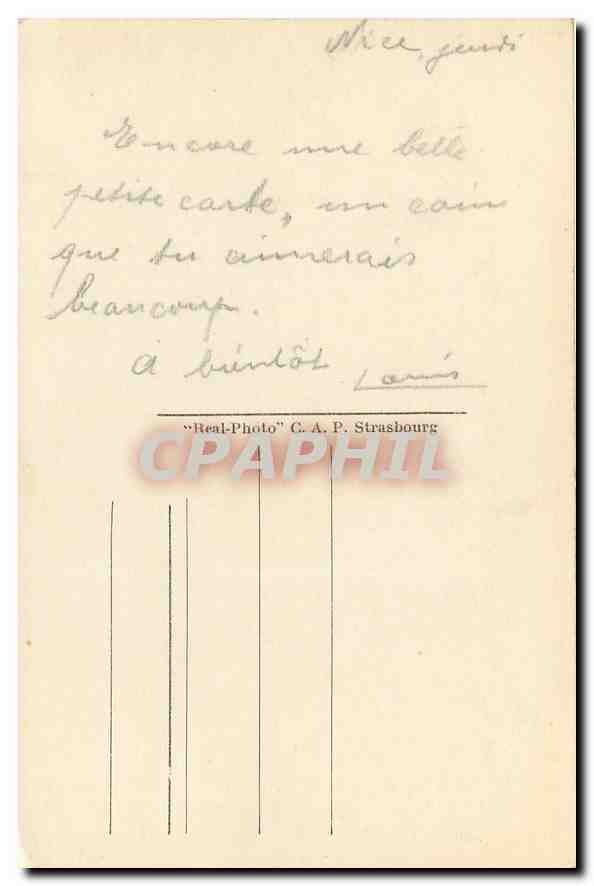 Nice, jeudi
Encore une belle
petite carte, un coin
que tu aimerais
beaucoup.
A bientôt Louis
"Real-Photo" C. A. P. Strasbourg
CPAPHIL